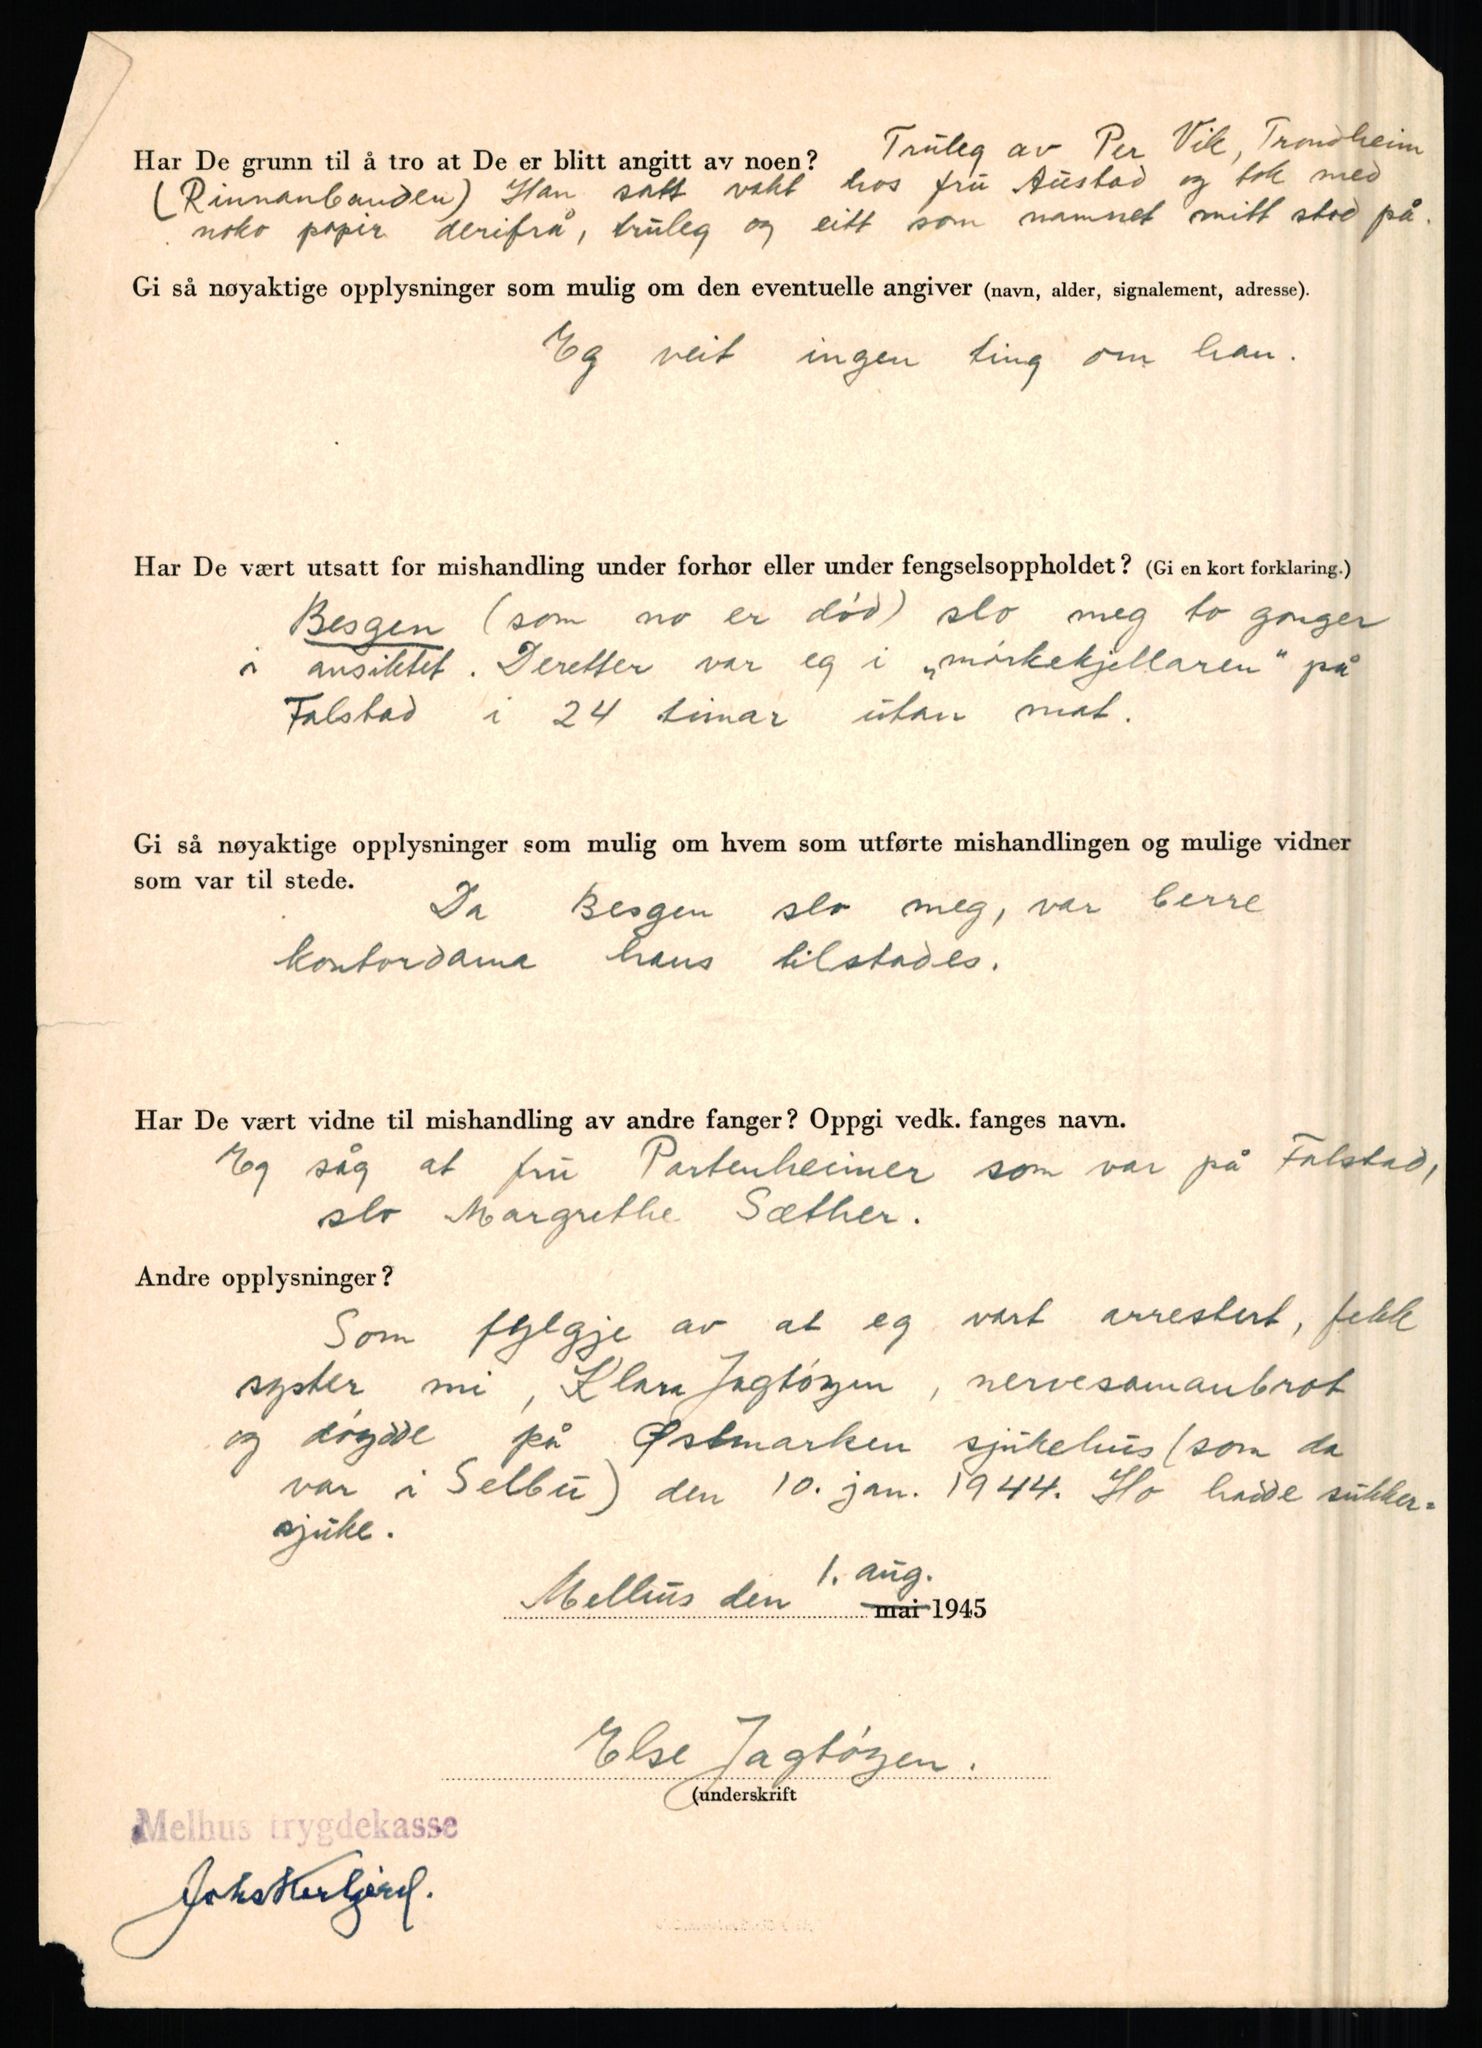 Har De grunn til å tro at De er blitt angitt av noen? Truleg av Per Vik, Trondheim
(Rinnanbanden) Han satt vakt hos fru Austad og tok med
noko papir derifrå, truleg og eitt som namnet mitt stod på.
Gi så nøyaktige opplysninger som mulig om den eventuelle angiver (navn, alder, signalement, adresse).
Eg veit ingen ting om han.
Har De vært utsatt for mishandling under forhør eller under fengselsoppholdet? (Gi en kort forklaring.)
Besgen (som no er død) slo meg to gonger
i ansiktet. Deretter var eg i „mørkekjellaren" på
Falstad i 24 timar utan mat.
Gi så nøyaktige opplysninger som mulig om hvem som utførte mishandlingen og mulige vidner
som var til stede.
Da Besgen slo meg, var berre
kontordama hans tilstades.
Har De vært vidne til mishandling av andre fanger? Oppgi vedk. fanges navn.
Eg såg at fru Partenheimer som var på Falstad,
slo Margrethe Sæther.
Andre opplysninger?
Som fylgje av at eg vart arrestert, fekk
syster mi, Klara Jagtøyen, nervesamanbrot
og døydde på Østmarken sjukehus (som da
var i Selbu) den 10. jan. 1944. Ho hadde sukker=
sjuke.
Melhus den 1. aug.
mai 1945
Else Jagtøyen.
(underskrift
Melhus trygdekasse